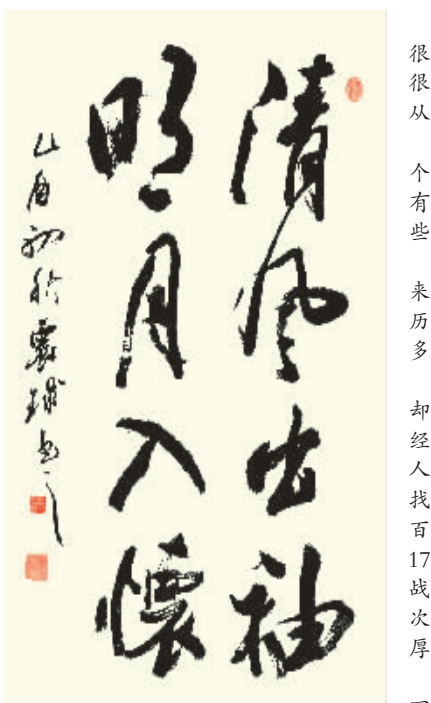 清风出袖
明月入懷
乙酉初秋
很
很
从
个
有
些
来
历
多
却
经
人
找
百
17
战
次
厚